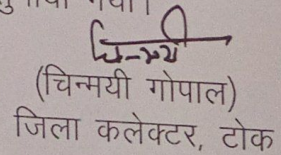 चिन्मयी
(चिन्मयी गोपाल)
जिला कलेक्टर, टोंक